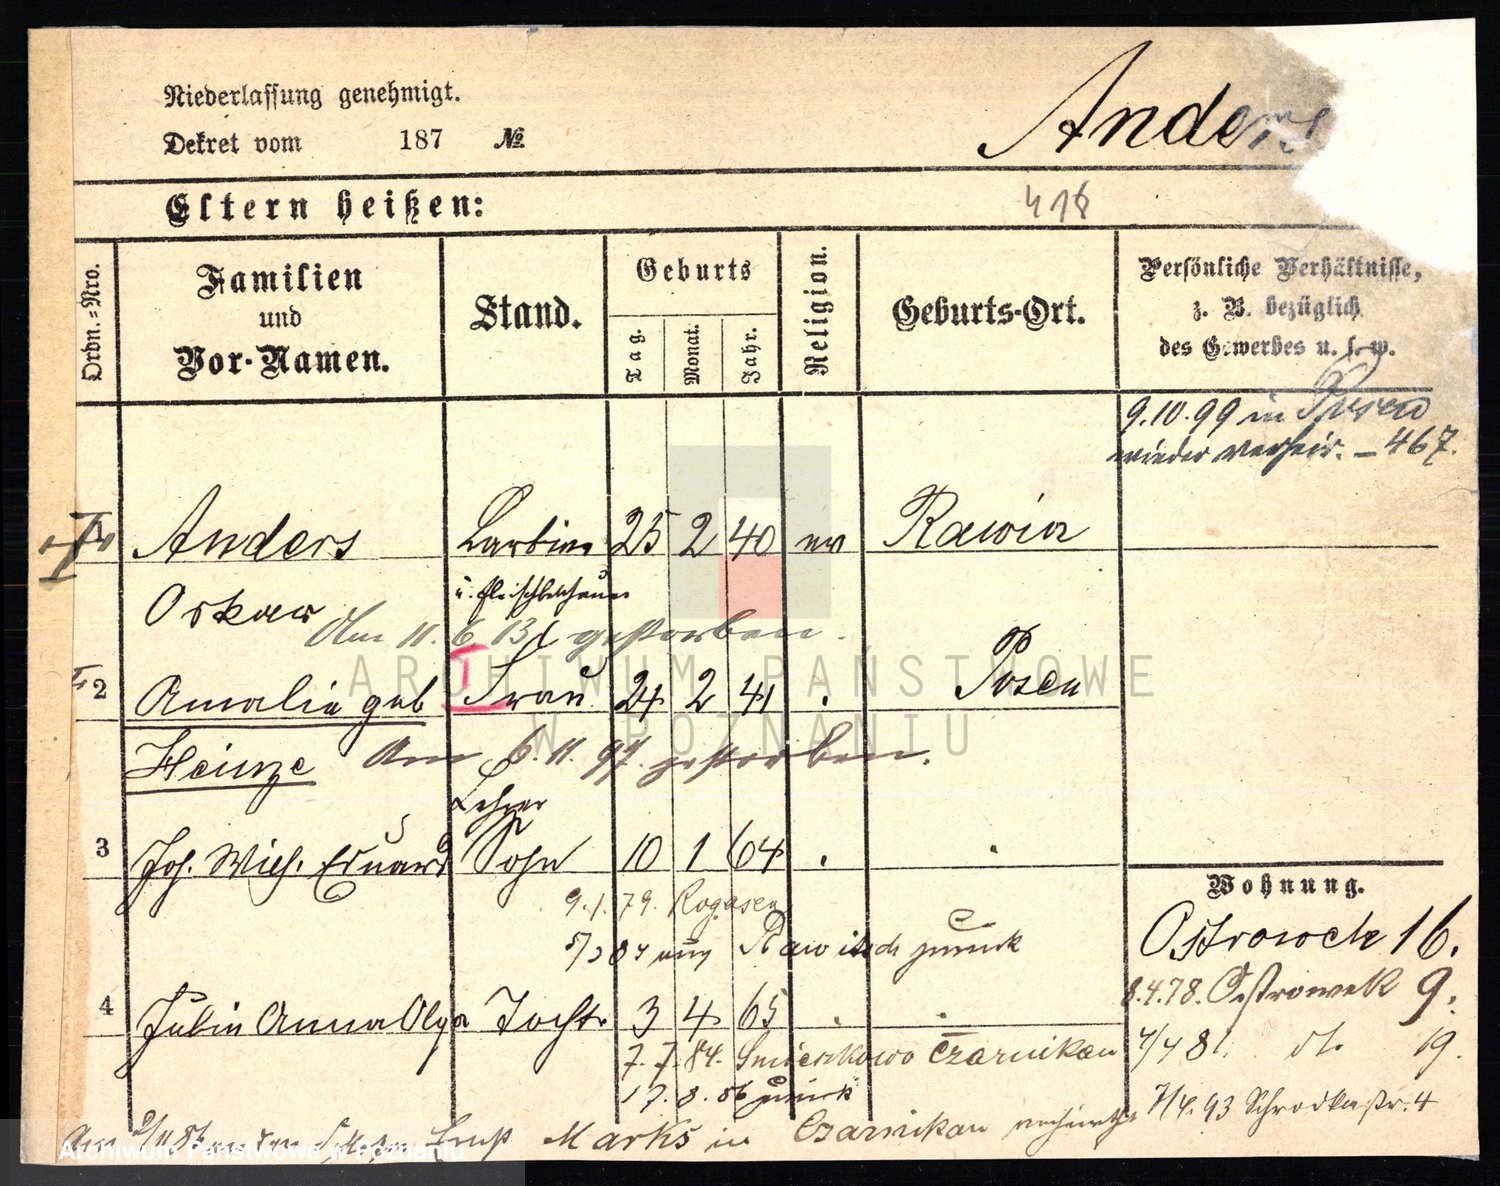 Niederlassung genehmigt.
Dekret vom 187 №
Anders
Eltern heißen:
416
Ordn.=Nro.
Familien
und
Vor-Namen.
Stand.
Geburts
Tag.
Monat.
Jahr.
Religion.
Geburts-Ort.
Persönliche Verhältnisse,
z. B. bezüglich
des Gewerbes u. s. w.
9.10.99 in Posen
wieder verheir. – 467.
1 Anders 25 2 40 ev Rawicz
Oskar u. Fleischbeschauer
Am 11.6.13 gestorben.
2 Amalie geb Frau 24 2 41 Posen
Heinze Am 6.11.97. gestorben.
Lehrer
3 Joh. Wilh. Eduard Sohn 10 1 64
9.1.79. Rogasen
Rawitsch zurück
4 Julie Anna Olga Tocht. 3 4 65
7.7.84. Czarnikau
17.8.86 zurück
Am Marks in Czarnikau
Wohnung.
Ostrowek 16.
8.4.78. Ostrowek 9.
4/4 81. do. 19.
7/4.93 Schrodkastr. 4
ARCHIWUM PAŃSTWOWE
W POZNANIU
Archiwum Państwowe w Poznaniu